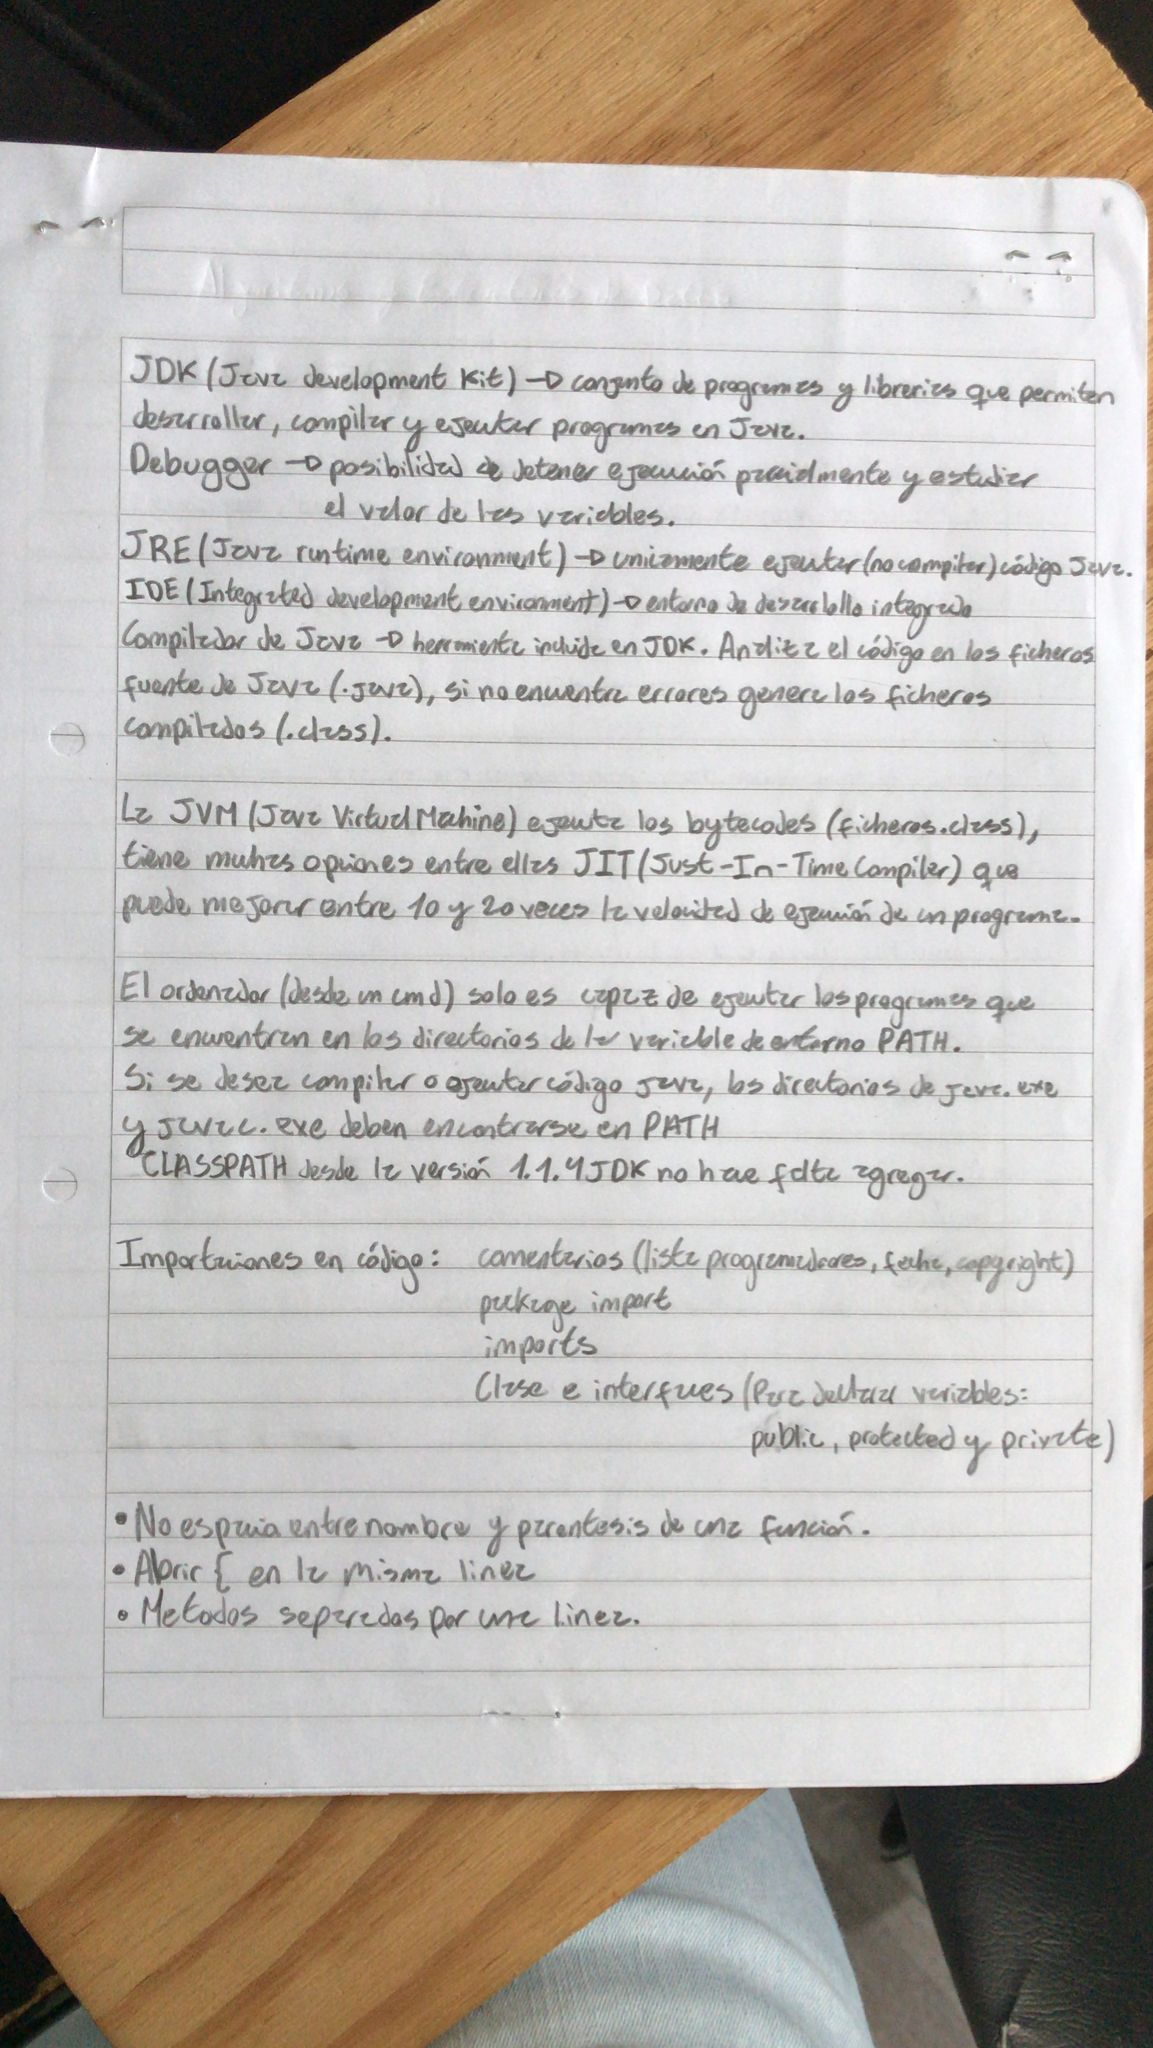 JDK (Java development Kit) → conjunto de programas y librerias que permiten
desarrollar, compilar y ejecutar programas en Java.
Debugger → posibilidad de detener ejecución parcialmente y estudiar
el valor de las variables.
JRE (Java runtime environment) → unicamente ejecutar (no compilar) código Java.
IDE (Integrated development environment) → entorno de desarrollo integrado
Compilador de Java → herramienta incluida en JDK. Analiza el código en los ficheros
fuente de Java (.java), si no encuentra errores genera los ficheros
compilados (.class).
La JVM (Java Virtual Machine) ejecuta los bytecodes (ficheros .class),
tiene muchas opciones entre ellas JIT (Just-In-Time Compiler) que
puede mejorar entre 10 y 20 veces la velocidad de ejecución de un programa.
El ordenador (desde un cmd) solo es capaz de ejecutar los programas que
se encuentran en los directorios de la variable de entorno PATH.
Si se desea compilar o ejecutar código java, los directorios de java.exe
y javac.exe deben encontrarse en PATH
CLASSPATH desde la versión 1.1.4 JDK no hace falta agregar.
Importaciones en código: comentarios (lista programadores, fecha, copyright)
package import
imports
Clase e interfaces (Para declarar variables:
public, protected y private)
• No espacio entre nombre y parentesis de una función.
• Abrir { en la misma linea
• Metodos separados por una linea.